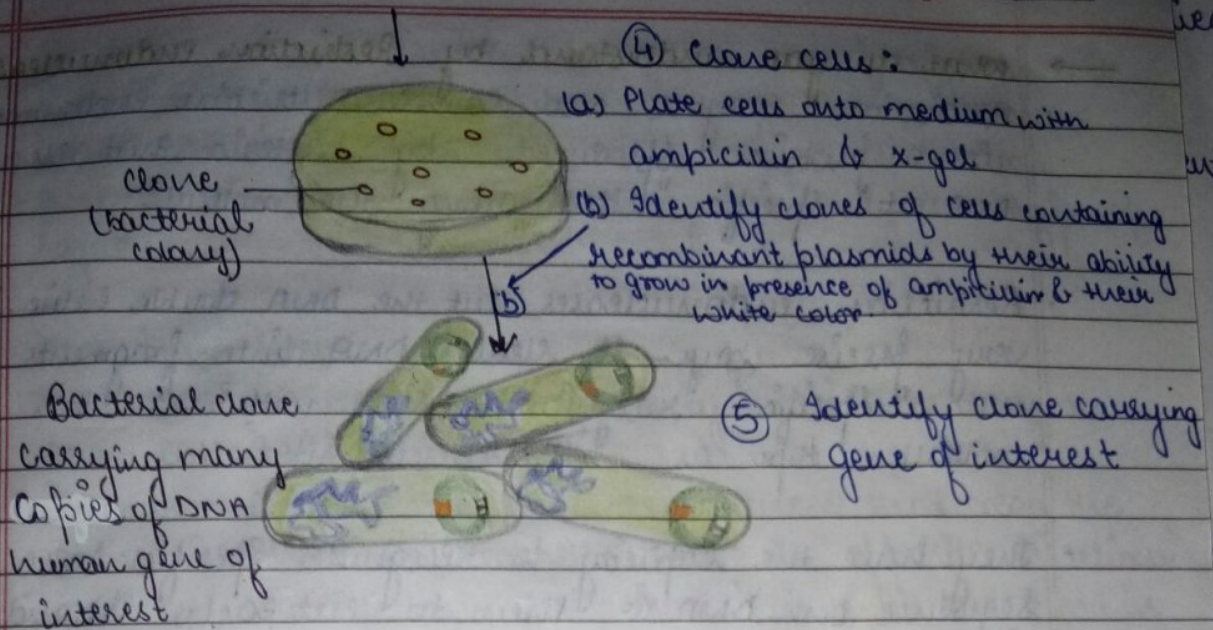 ④ Clone cells :
(a) Plate cells onto medium with
ampicillin & x-gel
(b) Identify clones of cells containing
recombinant plasmids by their ability
to grow in presence of ampicillin & their
white color.
clone
(bacterial
colony)
b
Bacterial clone
carrying many
copies of DNA
human gene of
interest
⑤ Identify clone carrying
gene of interest